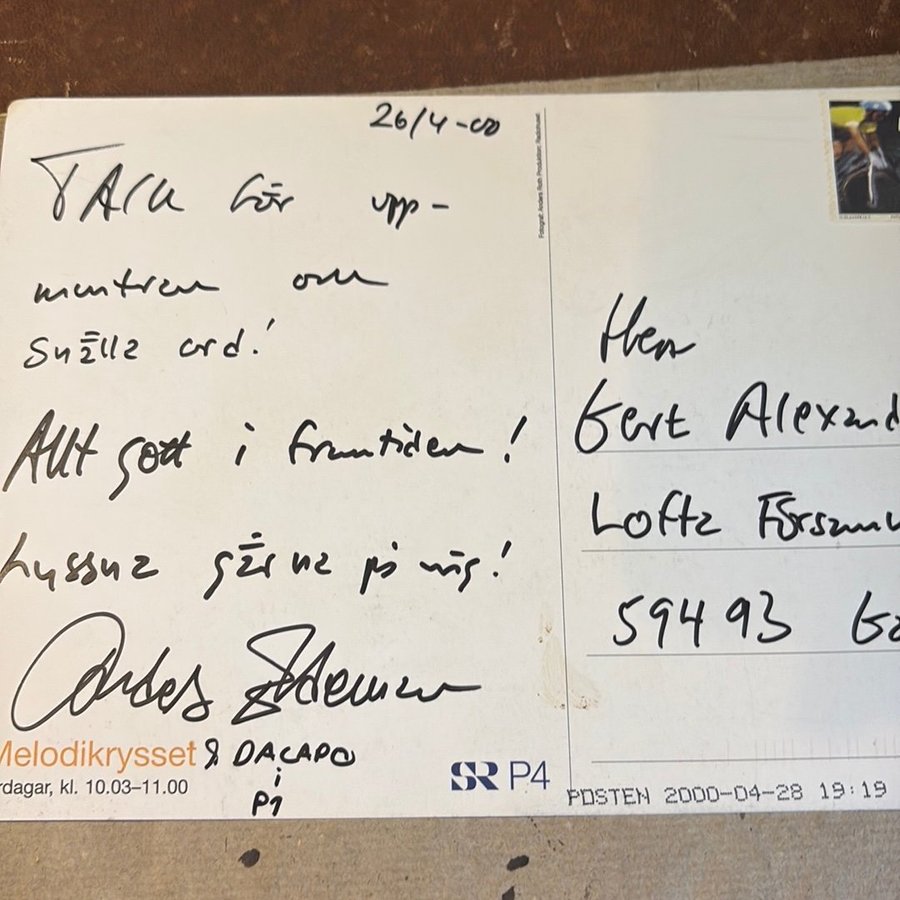 26/4-00
TACK för upp-
muntran och
snälla ord!
Allt gott i framtiden!
Lyssna gärna på mig!
Anders Eldeman
Melodikrysset & DACAPO
i
P1
rdagar, kl. 10.03–11.00
SR P4
Fotograf: Anders Roth Produktion: Radiohuset
Herr
Gert Alexand
Lofta Församl
594 93 Ga
POSTEN 2000-04-28 19:19